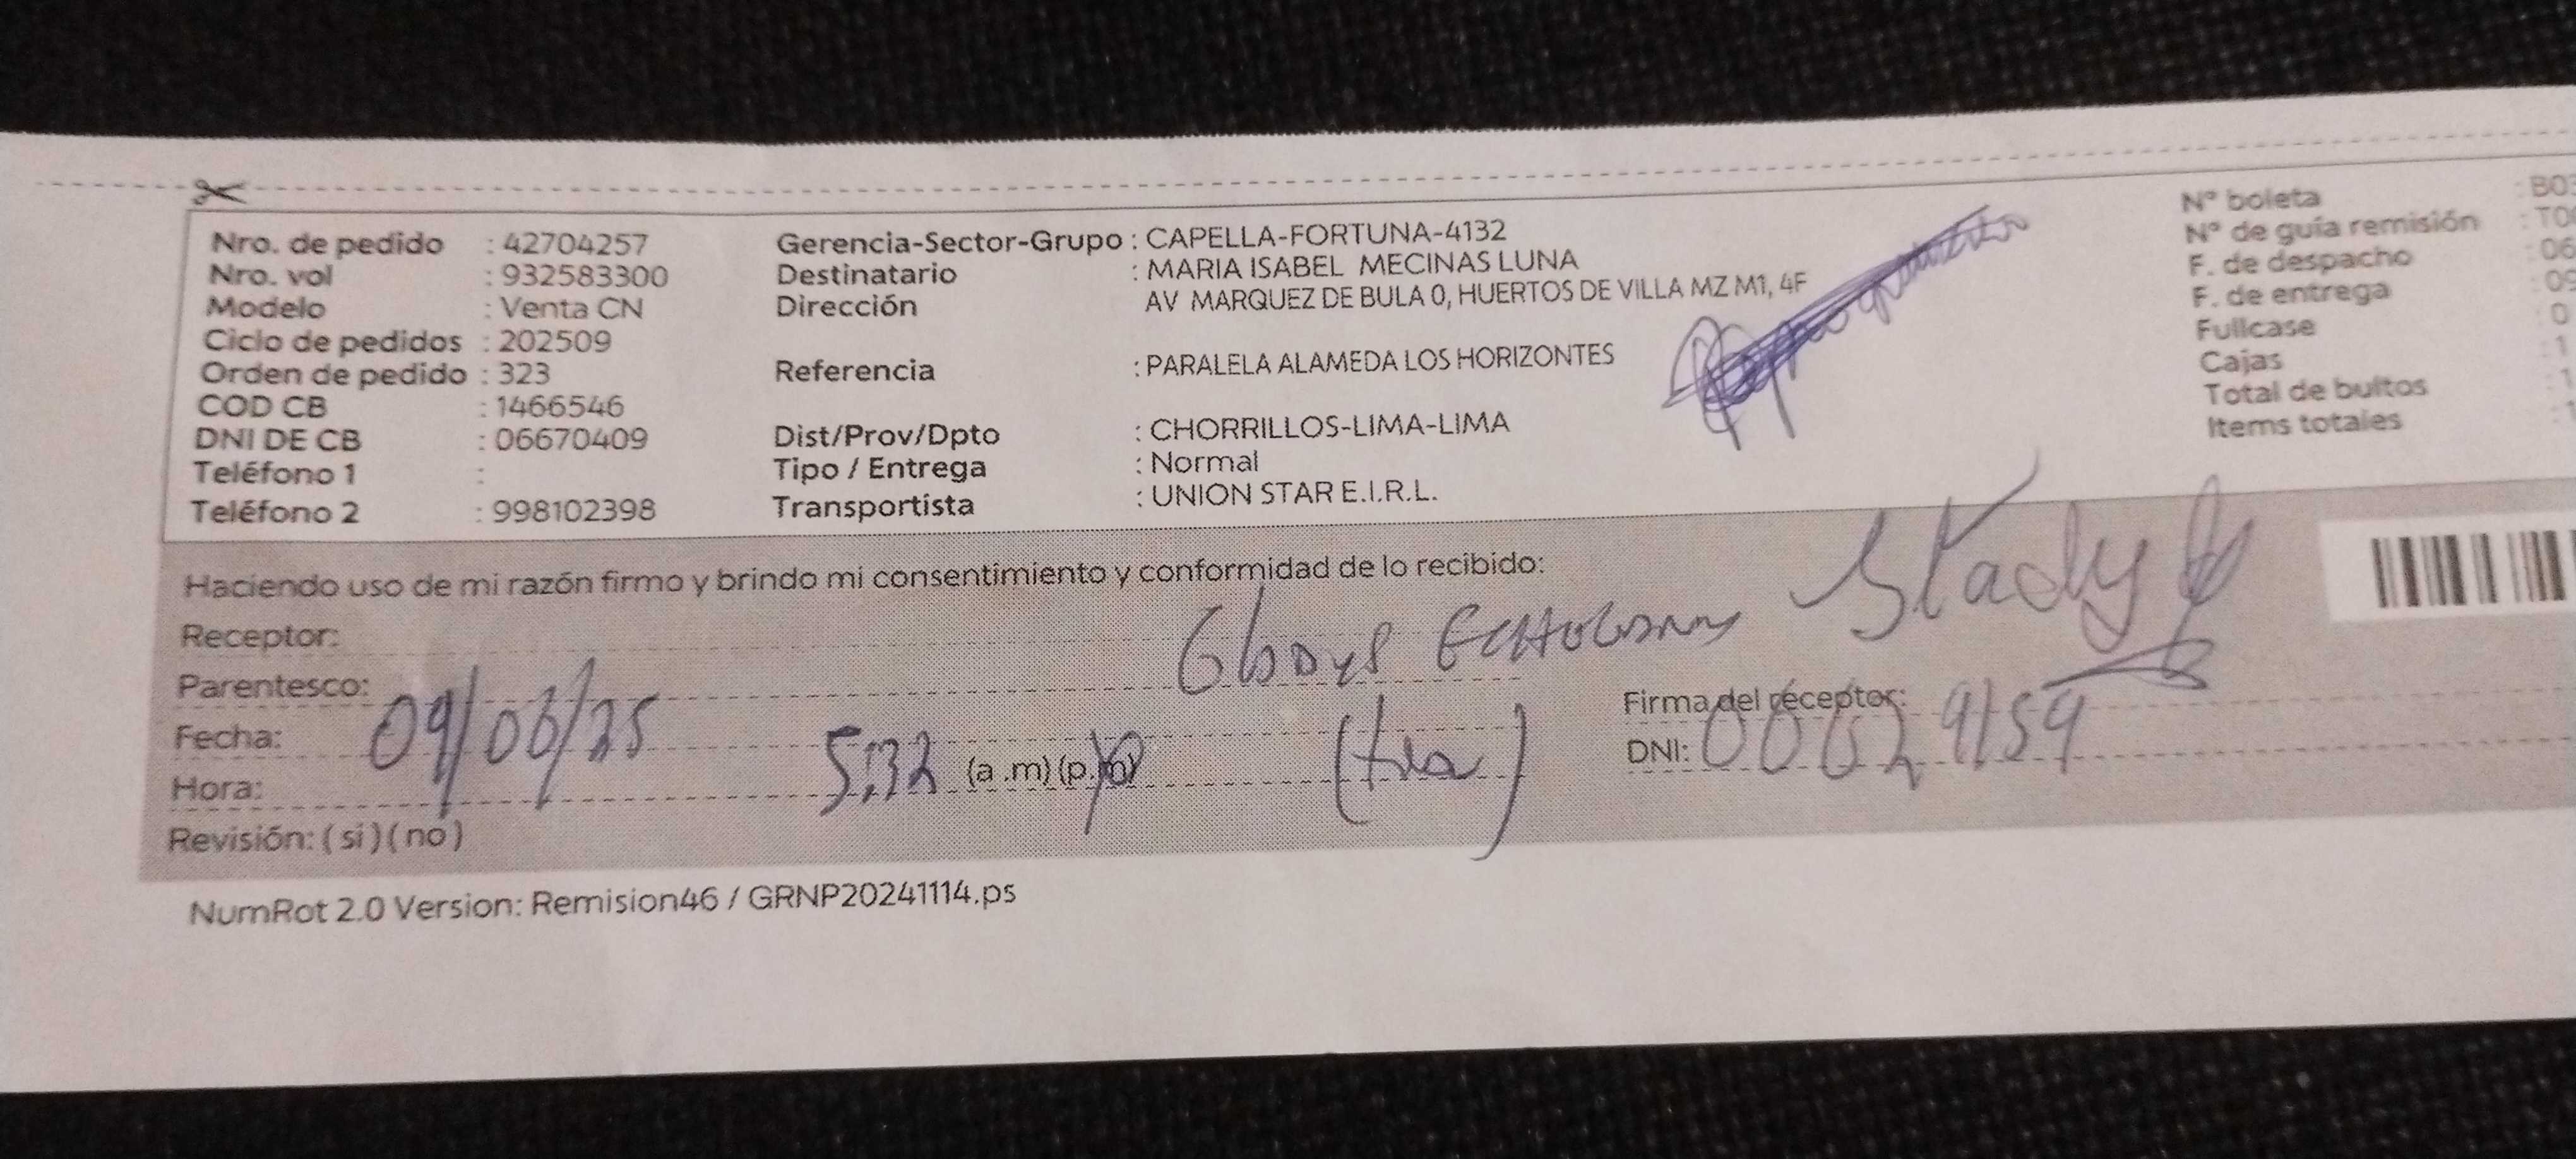 Nro. de pedido : 42704257
Nro. vol : 932583300
Modelo : Venta CN
Ciclo de pedidos : 202509
Orden de pedido : 323
COD CB : 1466546
DNI DE CB : 06670409
Teléfono 1 :
Teléfono 2 : 998102398
Gerencia-Sector-Grupo : CAPELLA-FORTUNA-4132
Destinatario : MARIA ISABEL MECINAS LUNA
Dirección AV MARQUEZ DE BULA 0, HUERTOS DE VILLA MZ M1, 4F
Referencia : PARALELA ALAMEDA LOS HORIZONTES
Dist/Prov/Dpto : CHORRILLOS-LIMA-LIMA
Tipo / Entrega : Normal
Transportista : UNION STAR E.I.R.L.
N° boleta : B03
N° de guía remisión : T0
F. de despacho : 06
F. de entrega : 09
Fullcase : 0
Cajas : 1
Total de bultos : 1
Items totales : 1
Haciendo uso de mi razón firmo y brindo mi consentimiento y conformidad de lo recibido:
Receptor: Gladys
Parentesco:
Fecha: 09/06/25
Hora: 5:32 (a .m) (p.m)
Revisión: ( si ) ( no )
Firma del receptor:
DNI:
NumRot 2.0 Version: Remision46 / GRNP20241114.ps